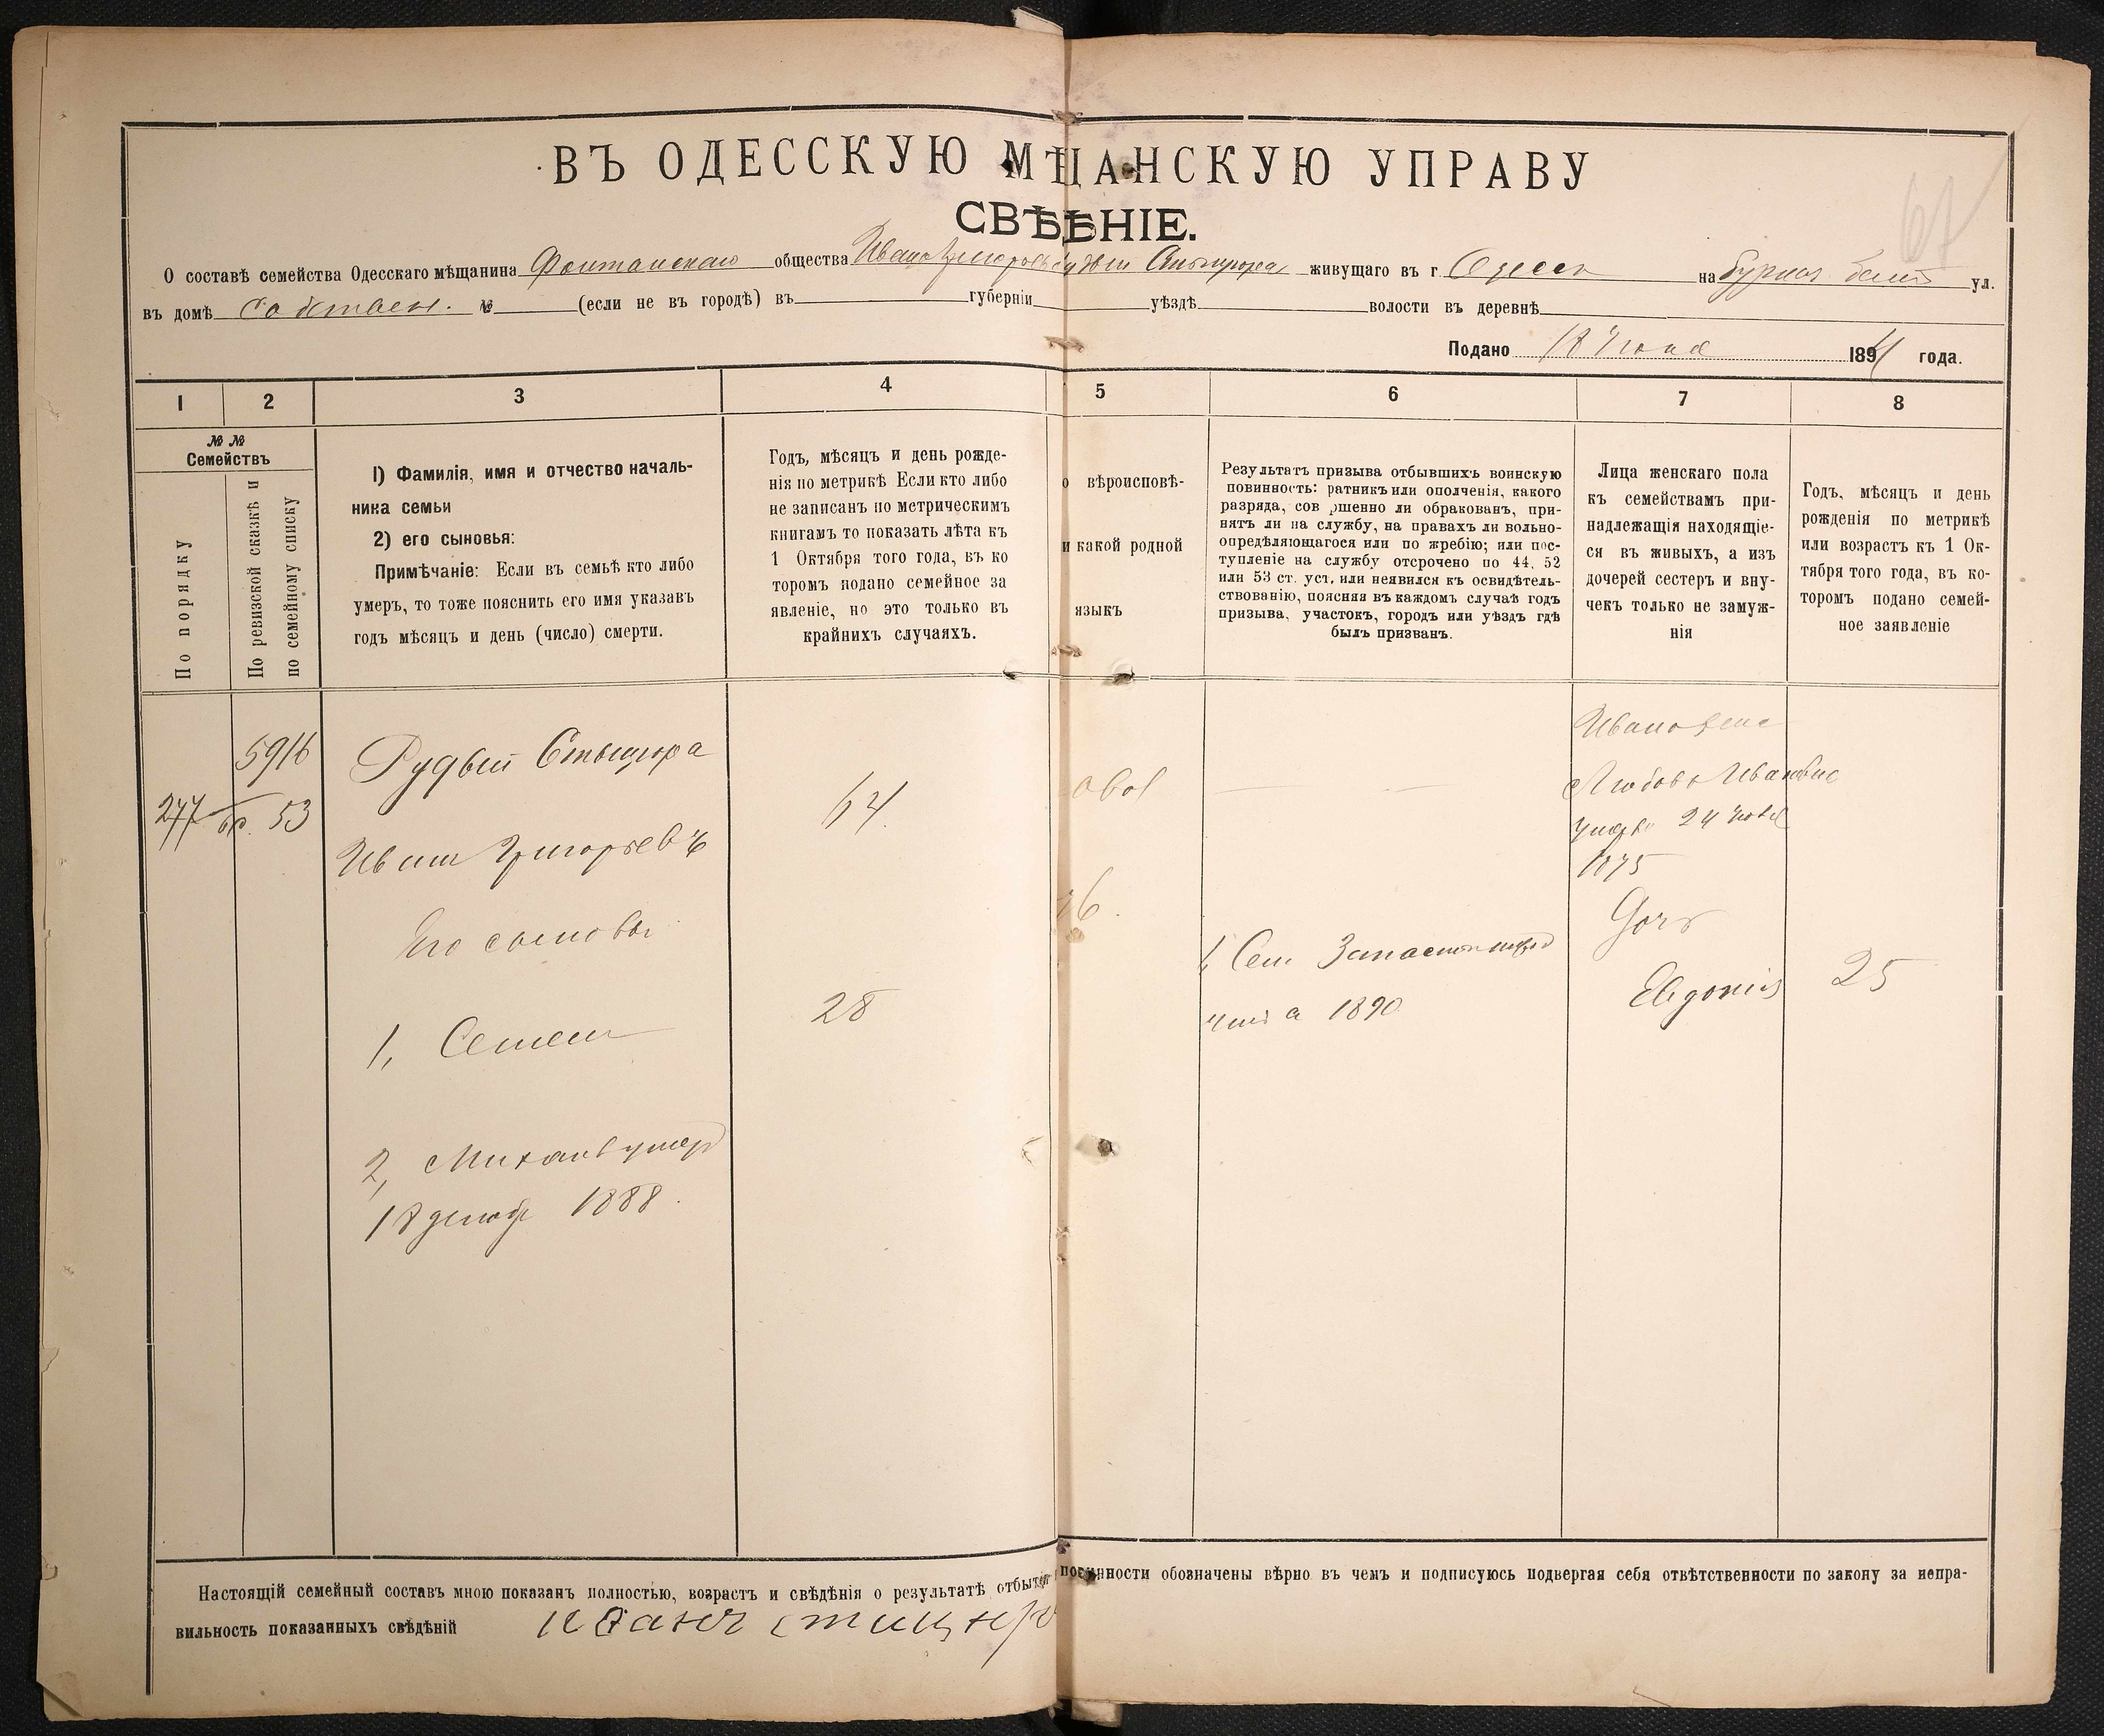 ВЪ ОДЕССКУЮ МѢЩАНСКУЮ УПРАВУ
СВѢДѢНІЕ.
67
О составѣ семейства Одесскаго мѣщанина Фонтанскаго общества Ивана Григорьева живущаго въ г. Одессѣ на ул.
въ домѣ собствен. № (если не въ городѣ) въ губерніи уѣздѣ волости въ деревнѣ
Подано 18 Іюня 1891 года.
1 2 3 4 5 6 7 8
№ №
Семействъ
По порядку
По ревизской сказкѣ и
по семейному списку
1) Фамилія, имя и отчество началь-
ника семьи
2) его сыновья:
Примѣчаніе: Если въ семьѣ кто либо
умеръ, то тоже пояснить его имя указавъ
годъ мѣсяцъ и день (число) смерти.
Годъ, мѣсяцъ и день рожде-
нія по метрикѣ Если кто либо
не записанъ по метрическимъ
книгамъ то показать лѣта къ
1 Октября того года, въ ко
торомъ подано семейное за
явленіе, но это только въ
крайнихъ случаяхъ.
о вѣроисповѣ-
и какой родной
языкъ
Результатъ призыва отбывшихъ воинскую
повинность: ратникъ или ополченія, какого
разряда, сов ршенно ли обракованъ, при-
нятъ ли на службу, на правахъ ли вольно-
опредѣляющагося или по жребію; или пос-
тупленіе на службу отсрочено по 44, 52
или 53 ст. уст, или неявился къ освидѣтель-
ствованію, поясняя въ каждомъ случаѣ годъ
призыва, участокъ, городъ или уѣздъ гдѣ
былъ призванъ.
Лица женскаго пола
къ семействамъ при-
надлежащія находящіе-
ся въ живыхъ, а изъ
дочерей сестеръ и вну-
чекъ только не замуж-
нія
Годъ, мѣсяцъ и день
рожденія по метрикѣ
или возрастъ къ 1 Ок-
тября того года, въ ко-
торомъ подано семей-
ное заявленіе
277
5916
53
Рудый Стыцюра
Иванъ Григорьевъ
64
Его сыновья
1, Семенъ
28
2, Михаилъ умеръ
18 декабр 1888.
1, Сем
1890
Ивана жена
Любовь Иванова
умерла 24
1875
Дочь
Евдокія
25
Настоящій семейный составъ мною показанъ полностью, возрастъ и свѣдѣнія о результатѣ отбытія повинности обозначены вѣрно въ чемъ и подписуюсь подвергая себя отвѣтственности по закону за непра-
вильность показанныхъ свѣдѣній Иванъ